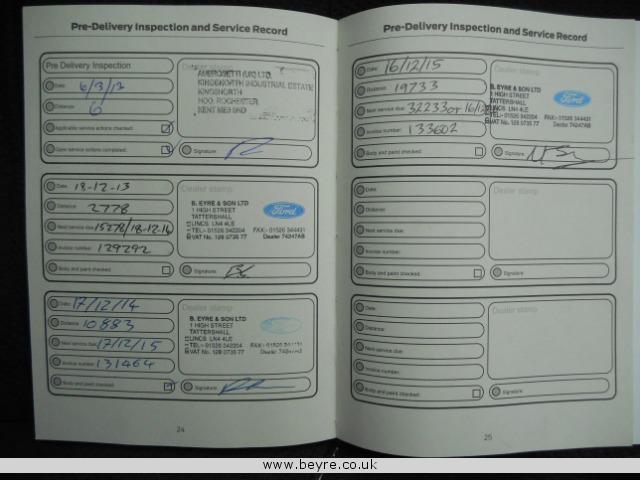 Pre-Delivery Inspection and Service Record
Pre Delivery Inspection
Dealer stamp
Date 6/3/13
Distance 6
Applicable service actions checked
Open service actions completed
(UK) LTD.
KINGSNORTH INDUSTRIAL ESTATE
KINGSNORTH
HOO, ROCHESTER
KENT ME3 9ND
Signature
Date 18-12-13
Distance 2778
Next service due 15278/18-12-14
Invoice number 129292
Body and paint checked
Dealer stamp
B. EYRE & SON LTD
1 HIGH STREET
TATTERSHALL
LINCS LN4 4LE
TEL:- 01526 342204 FAX:- 01526 344431
VAT No. 128 0735 77 Dealer 74247AB
Ford
Signature
Date 17/12/14
Distance 10883
Next service due 17/12/15
Invoice number 131464
Body and paint checked
Dealer stamp
B. EYRE & SON LTD
1 HIGH STREET
TATTERSHALL
LINCS LN4 4LE
TEL:- 01526 342204
VAT No. 128 0735 77
Signature
24
Pre-Delivery Inspection and Service Record
Date 16/12/15
Distance 19733
Next service due 32233 or 16/12
Invoice number 133602
Body and paint checked
B. EYRE & SON LTD
1 HIGH STREET
TATTERSHALL
LINCS LN4 4LE
TEL:- 01526 342204 FAX:- 01526 344431
VAT No. 128 0735 77 Dealer 74247AB
Ford
Signature
Date
Distance
Next service due
Invoice number
Body and paint checked
Dealer stamp
Signature
Date
Distance
Next service due
Invoice number
Body and paint checked
Dealer stamp
Signature
25
www.beyre.co.uk